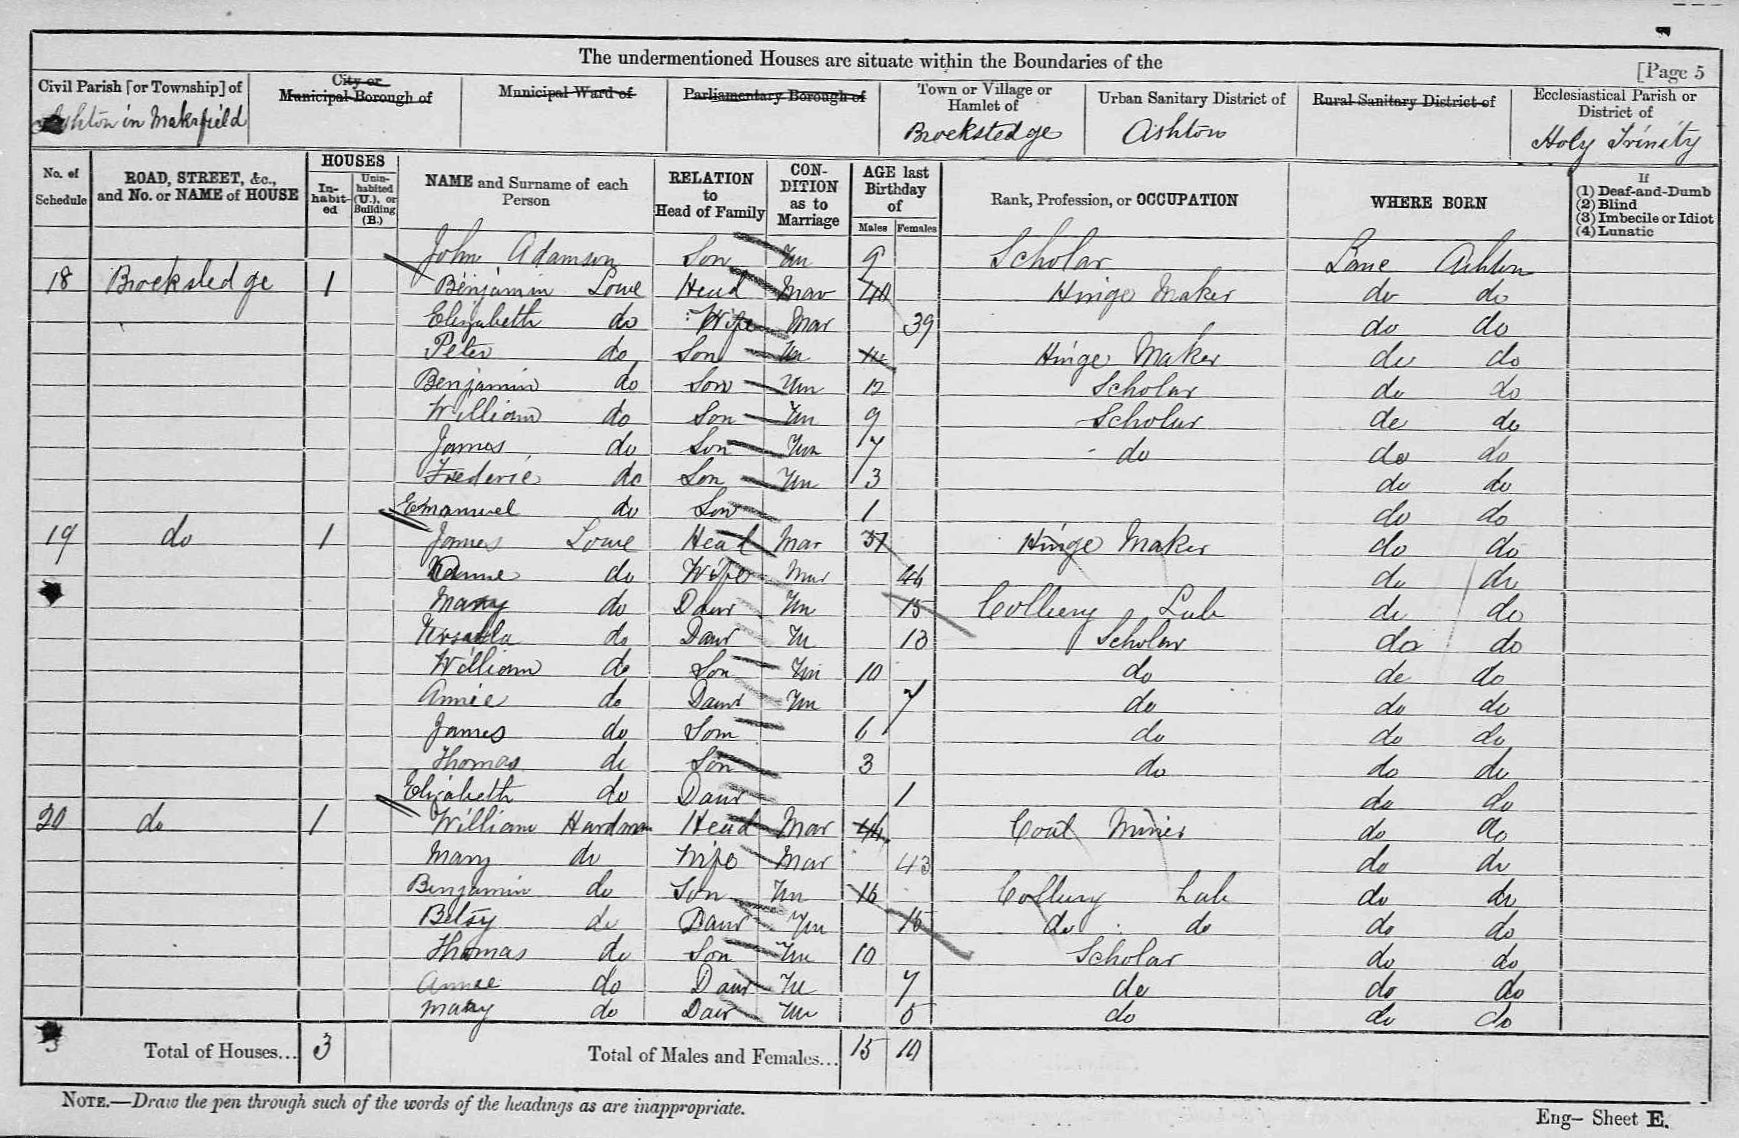 The undermentioned Houses are situate within the Boundaries of the
[Page 5
Civil Parish [or Township] of
Ashton in Makerfield
City or Municipal Borough of
Municipal Ward of
Parliamentary Borough of
Town or Village or Hamlet of
Brockstedge
Urban Sanitary District of
Ashton
Rural Sanitary District of
Ecclesiastical Parish or District of
Holy Trinity
No. of Schedule
ROAD, STREET, &c., and No. or NAME of HOUSE
HOUSES
In-habit-ed
Unin-habited (U.), or Building (B.)
NAME and Surname of each Person
RELATION to Head of Family
CON-DITION as to Marriage
AGE last Birthday of
Males Females
Rank, Profession, or OCCUPATION
WHERE BORN
If
(1) Deaf-and-Dumb
(2) Blind
(3) Imbecile or Idiot
(4) Lunatic
John Adamson Son Un 9 Scholar Lanc Ashton
18 Brocksledge 1 Benjamin Lowe Head Mar 40 Hinge Maker do do
Elizabeth do Wife Mar 39 do do
Peter do Son Un 14 Hinge Maker do do
Benjamin do Son Un 12 Scholar do do
William do Son Un 9 Scholar do do
James do Son Un 7 do do do
Frederic do Son Un 3 do do
Emanuel do Son 1 do do
19 do 1 James Lowe Head Mar 37 Hinge Maker do do
do Wife Mar 46 do do
Mary do Daur Un 15 Colliery Lab do do
Ursulla do Daur Un 13 Scholar do do
William do Son Un 10 do do do
Annie do Daur Un 7 do do do
James do Son 6 do do do
Thomas do Son 3 do do do
Elizabeth do Daur 1 do do
20 do 1 William Hardman Head Mar 44 Coal Miner do do
Mary do Wife Mar 43 do do
Benjamin do Son Un 16 Colliery Lab do do
Betsy do Daur Un 15 do do do do
Thomas do Son Un 10 Scholar do do
Annie do Daur Un 7 do do do
Mary do Daur Un 5 do do do
3
Total of Houses... 3 Total of Males and Females... 15 10
NOTE.—Draw the pen through such of the words of the headings as are inappropriate.
Eng– Sheet E.